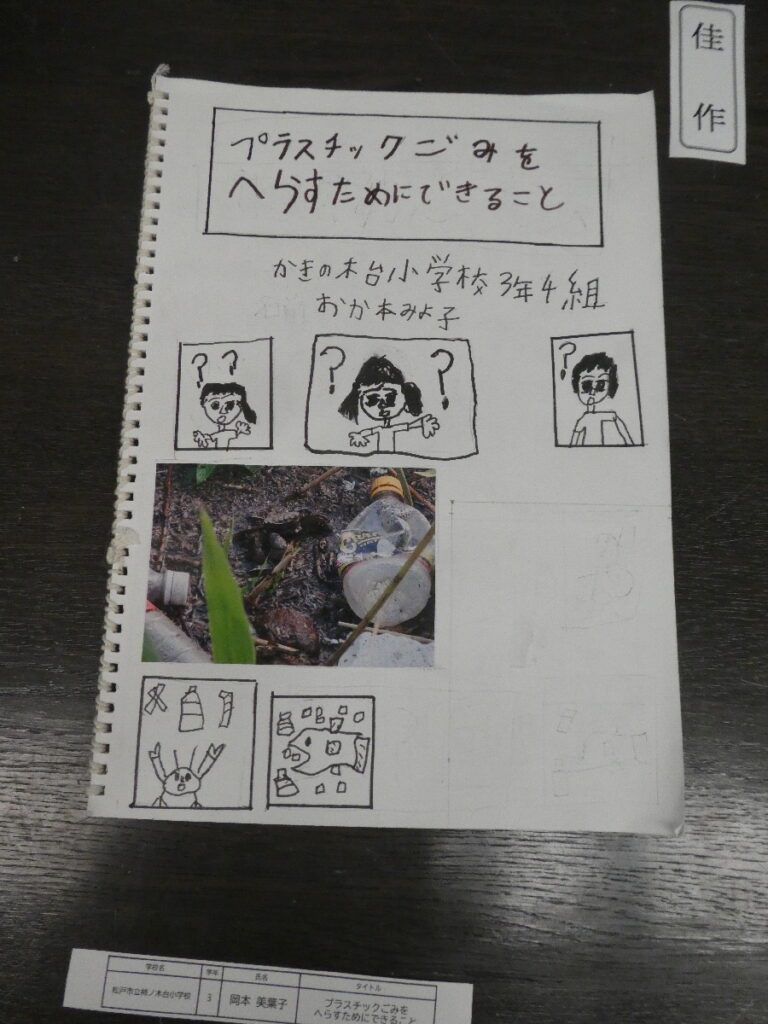 佳作
プラスチックごみを
へらすためにできること
かきの木台小学校3年4組
おか本みよ子
? ?
? ?
?
学校名 学年 氏名 タイトル
松戸市立柿ノ木台小学校 3 岡本 美葉子 プラスチックごみを
へらすためにできること